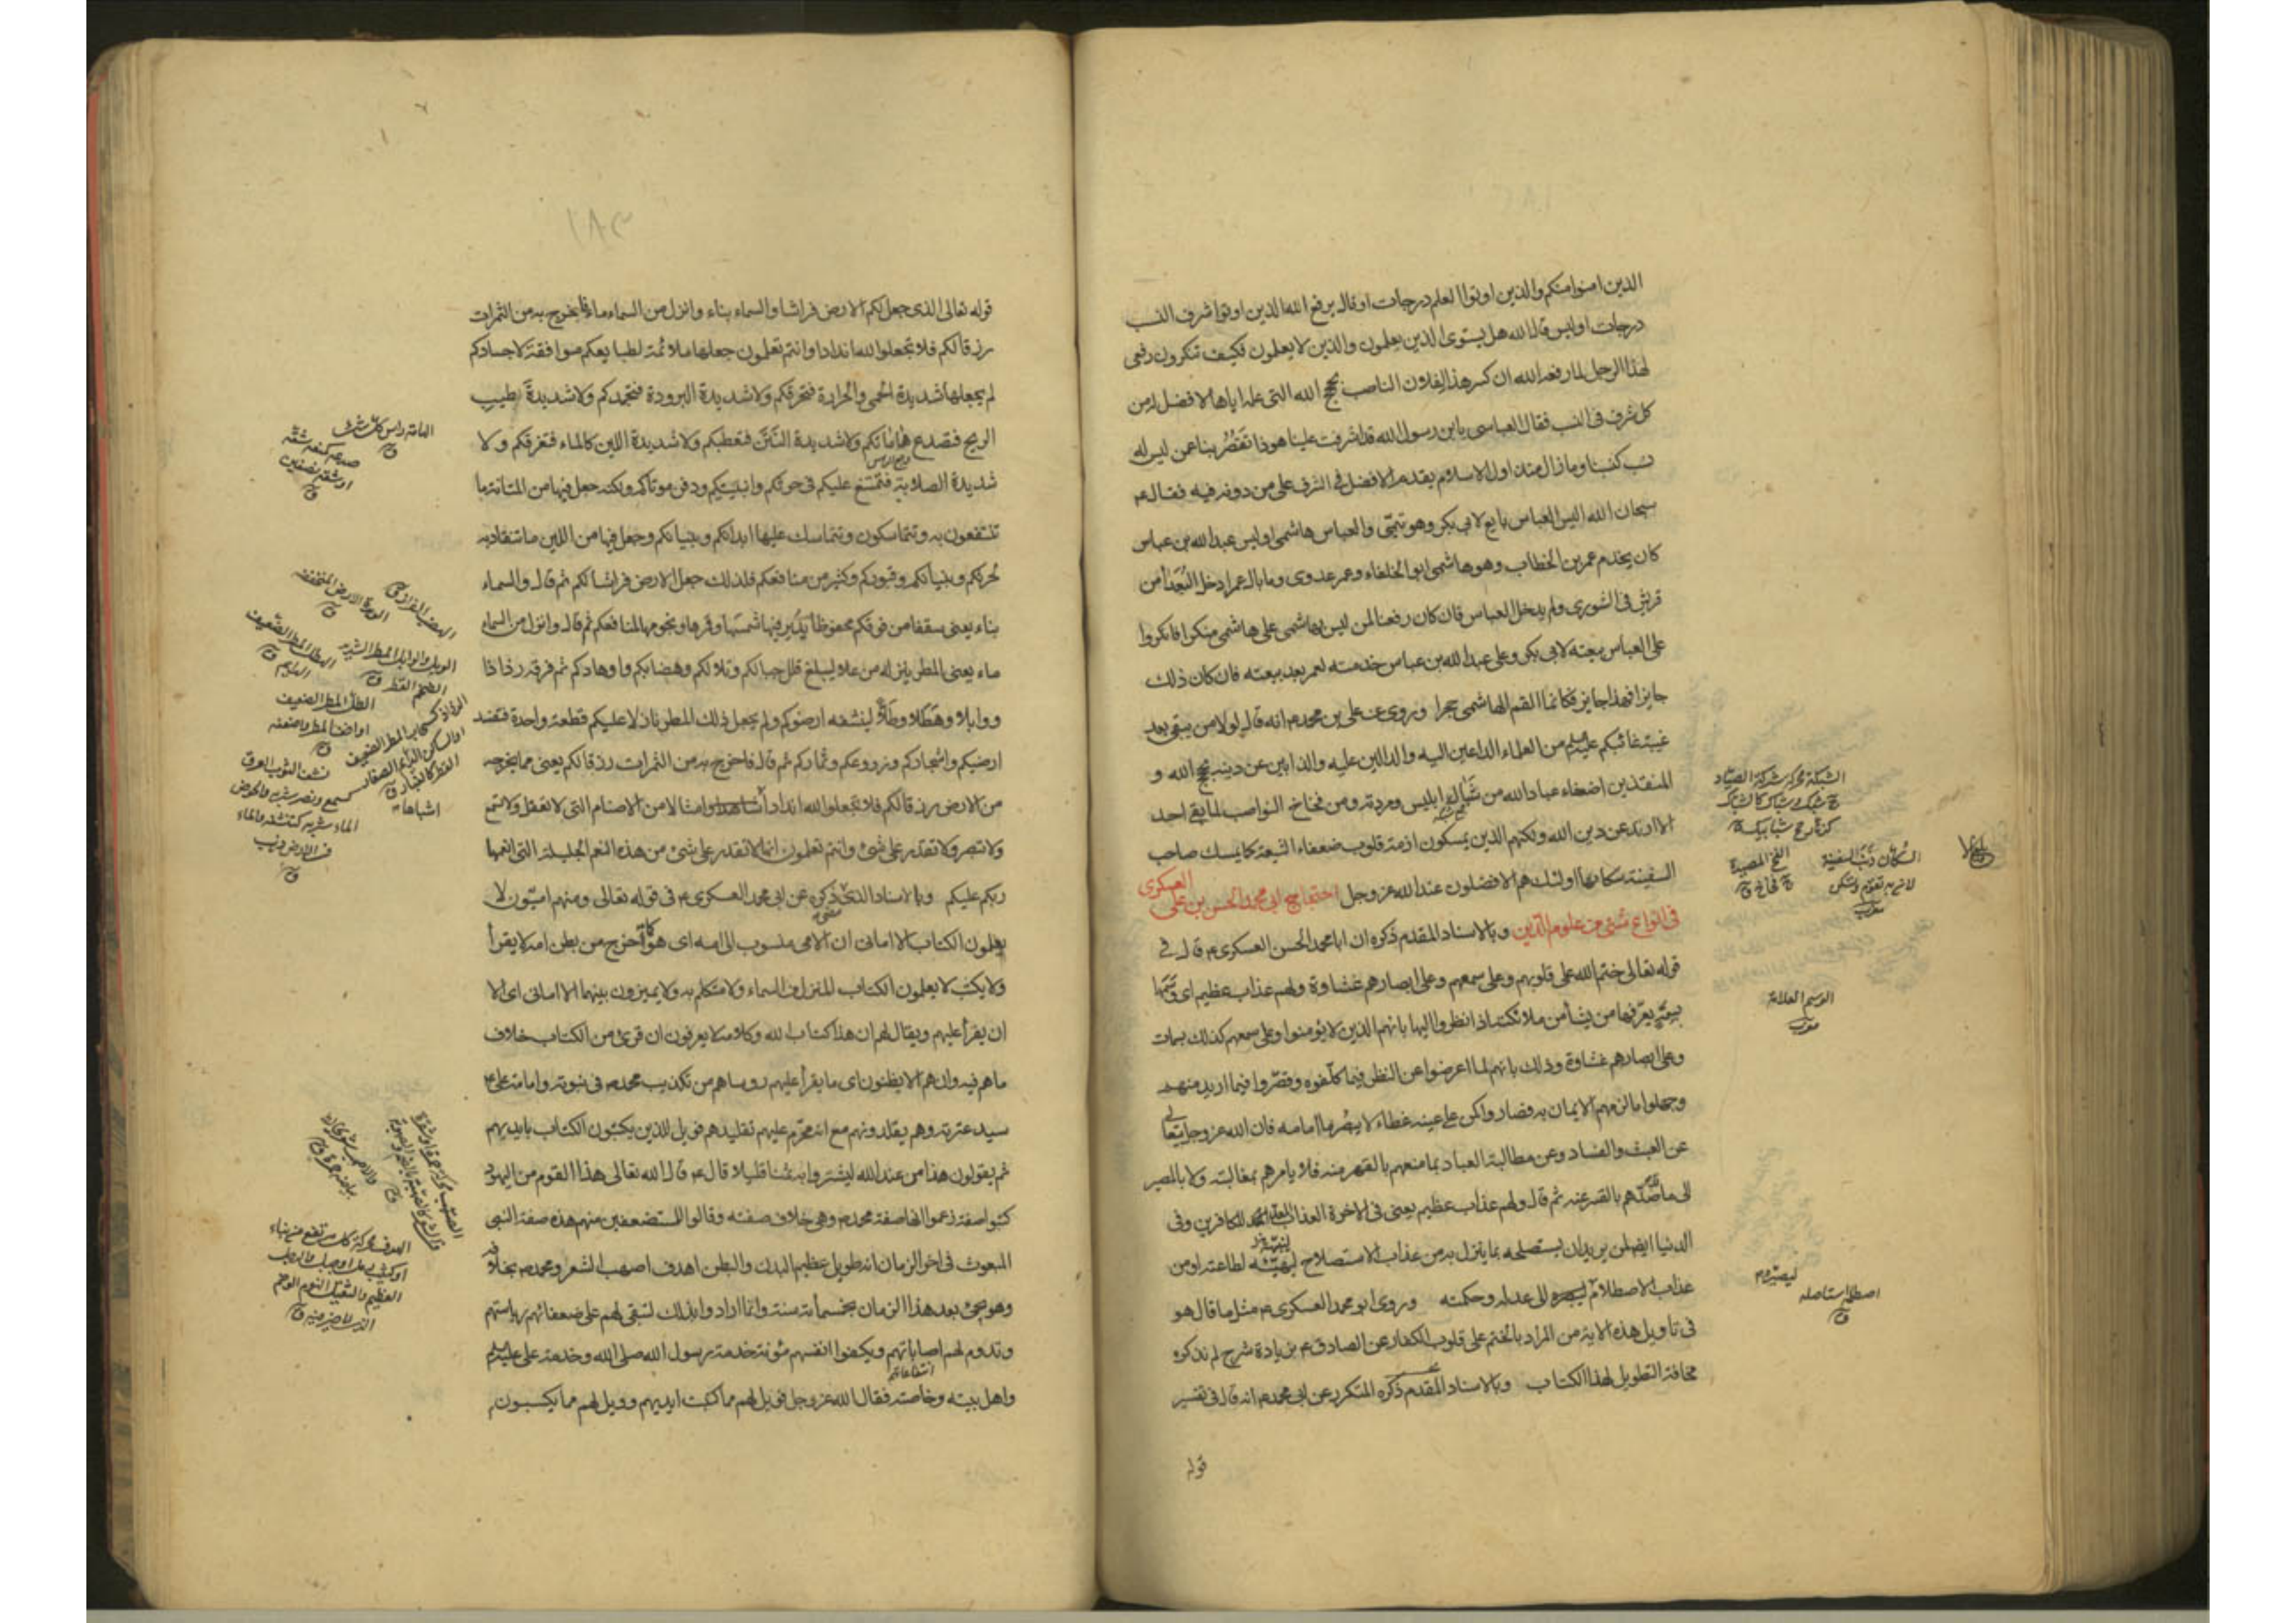 الذين امنوا منكم والذين اوتوا العلم درجات او قال يرفع الله الذين اوتوا شرف النسب
درجات اوليس قال الله هل يستوى الذين يعلمون والذين لا يعلمون فكيف تنكرون رفعى
لهذا الرجل لما رفعه الله ان كسر هذا لفلان الناصب بحجج الله التى علمه اياها لافضل له من
كل شرف فى النسب فقال العباسى يا بن رسول الله قد اشرفت علينا هوذا تقصر بنا عمن ليس له
نسب كنسبنا وما زال منذ اول الاسلام يقدم الافضل فى الشرف على من دونه فيه فقال ع
سبحان الله اليس العباس بايع لابى بكر وهو تيمى والعباس هاشمى اوليس عبد الله بن عباس
كان يخدم عمر بن الخطاب وهو هاشمى ابو الخلفاء وعمر عدوى وما بال عمر ادخل البعداء من
قريش فى الشورى ولم يدخل العباس فان كان رفعنا لمن ليس بهاشمى على هاشمى منكرا فانكروا
على العباس بيعته لابى بكر وعلى عبد الله بن عباس خدمته لعمر بعد بيعته فان كان ذلك
جايزا فهذا جايز فكانما القم الهاشمى حجرا وروى عن على بن محمد ع انه قال لولا من يبقى بعد
غيبة غائبكم عليه السلم من العلماء الداعين اليه والدالين عليه والذابين عن دينه بحجج الله و
المنقذين لضعفاء عباد الله من شباك ابليس ومردته ومن فخاخ النواصب لما بقى احد
الا ارتد عن دين الله ولكنهم الذين يمسكون ازمة قلوب ضعفاء الشيعة كما يمسك صاحب
السفينة سكانها اولئك هم الافضلون عند الله عز وجل احتجاج ابى محمد الحسن بن على العسكرى
فى انواع شتى من علوم الدين وبالاسناد المقدم ذكره ان ابا محمد الحسن العسكرى ع قال فى
قوله تعالى ختم الله على قلوبهم وعلى سمعهم وعلى ابصارهم غشاوة ولهم عذاب عظيم اى وسمها
بسمة يعرفها من يشأ من ملائكته اذا نظروا اليها بانهم الذين لا يؤمنوا وعلى سمعهم كذلك بسمات
وعلى ابصارهم غشاوة وذلك بانهم لما اعرضوا عن النظر فيما كلفوه وقصروا فيما اريد منهم
وجهلوا ما لزمهم الايمان به فصاروا كمن على عينه غطاء لا يبصر ما امامه فان الله عز وجل يتعالى
عن العبث والفساد وعن مطالبة العباد بما منعهم بالقهر منه فلا يامرهم بمغالبته ولا بالمصير
الى ما صدهم بالقسر عنه ثم قال ولهم عذاب عظيم يعنى فى الاخرة العذاب المعد للكافرين وفى
الدنيا ايضا لمن يريدان يستصلحه بما ينزل به من عذاب الاستصلاح لينبهه لطاعته او من
عذاب الاصطلام ليصيره الى عدله وحكمته وروى ابو محمد العسكرى ع مثل ما قال هو
فى تاويل هذه الاية من المراد بالختم على قلوب الكفار عن الصادق ع بزيادة شرح لم نذكره
مخافة التطويل لهذا الكتاب وبالاسناد المقدم ذكره المتكرر عن ابى محمد ع انه قال فى تفسير
قوله
الشبكة محركة شركة الصياد
السكان ذنب السفينة
لانها به تقوم وتسكن
مغرب
الفخ المصيدة
ج فخاخ ق
الوسم العلامة
مغرب
ليصيره م
اصطلمه استاصله
ق
١٨٣
قوله تعالى الذى جعل لكم الارض فراشا والسماء بناء وانزل من السماء ماء فاخرج به من الثمرات
رزقا لكم فلا تجعلوا لله اندادا وانتم تعلمون جعلها ملائمة لطبايعكم موافقة لاجسادكم
لم يجعلها شديدة الحمى والحرارة فتحرقكم ولا شديدة البرودة فتجمدكم ولا شديدة طيب
الريح فتصدع هاماتكم ولا شديدة النتن فتعطبكم ولا شديدة اللين كالماء فتغرقكم ولا
شديدة الصلابة فتمتنع عليكم فى حرثكم وابنيتكم ودفن موتاكم ولكنه جعل فيها من المتانة ما
تنتفعون به وتتماسكون وتتماسك عليها ابدانكم وبنيانكم وجعل فيها من اللين ما تنقاد به
لحرثكم وبنيانكم وقبوركم وكثير من منافعكم فلذلك جعل الارض فراشا لكم ثم قال والسماء
بناء يعنى سقفا من فوقكم محفوظا يدير فيها شمسها وقمرها ونجومها لمنافعكم ثم قال وانزل من السماء
ماء يعنى المطر ينزله من علا ليبلغ قلل جبالكم وتلالكم وهضابكم واوهادكم ثم فرقه رذاذا
ووابلا وهطلا وطلا لينشفه ارضوكم ولم يجعل ذلك المطر نازلا عليكم قطعة واحدة فتفسد
ارضيكم واشجاركم وزروعكم وثماركم ثم قال فاخرج به من الثمرات رزقا لكم يعنى مما يخرجه
من الارض رزقا لكم فلا تجعلوا لله اندادا اشباها وامثالا من الاصنام التى لا تعقل ولا تسمع
ولا تبصر ولا تقدر على شئ وانتم تعلمون انها لا تقدر على شئ من هذه النعم الجليلة التى انعمها
ربكم عليكم وبالاسناد الذى مضى ذكره عن ابى محمد العسكرى ع فى قوله تعالى ومنهم اميون لا
يعلمون الكتاب الا امانى ان الامى منسوب الى امه اى هو كما اخرج من بطن امه لا يقرأ
ولا يكتب لا يعلمون الكتاب المنزل من السماء ولا المتكلم به ولا يميزون بينهما الا امانى اى الا
ان يقرأ عليهم ويقال لهم ان هذا كتاب الله وكلامه لا يعرفون ان قرئ من الكتاب خلاف
ما هم فيه وان هم الا يظنون اى ما يقرأ عليهم روساهم من تكذيب محمد ص فى نبوته وامامة على ع
سيد عترته وهم يقلدونهم مع انه محرم عليهم تقليدهم فويل للذين يكتبون الكتاب بايديهم
ثم يقولون هذا من عند الله ليشتروا به ثمنا قليلا قال ع قال الله تعالى هذا القوم من اليهود
كتبوا صفة زعموا انها صفة محمد ص وهى خلاف صفته وقالوا للمستضعفين منهم هذه صفة النبى
المبعوث فى اخر الزمان انه طويل عظيم البدن والبطن اهدف اصهب الشعر ومحمد ص بخلافه
وهو يجئ بعد هذا الزمان بخمسمأئة سنة وانما ارادوا بذلك لتبقى لهم على ضعفائهم رياستهم
وتدوم لهم اصاباتهم ويكفوا انفسهم مئونة خدمة رسول الله صلى الله وخدمة على عليه السلم
واهل بيته وخاصته فقال الله عز وجل فويل لهم مما كتبت ايديهم وويل لهم مما يكسبون
الهامة راس كل شئ
ق
صدعه كمنعه شقه
او شقه نصفين
ق
الوهدة الارض المنخفضة
الوبل والوابل المطر الشديد
الضخم القطر ق
الطل المطر الضعيف
او اخف المطر واضعفه
اشباها